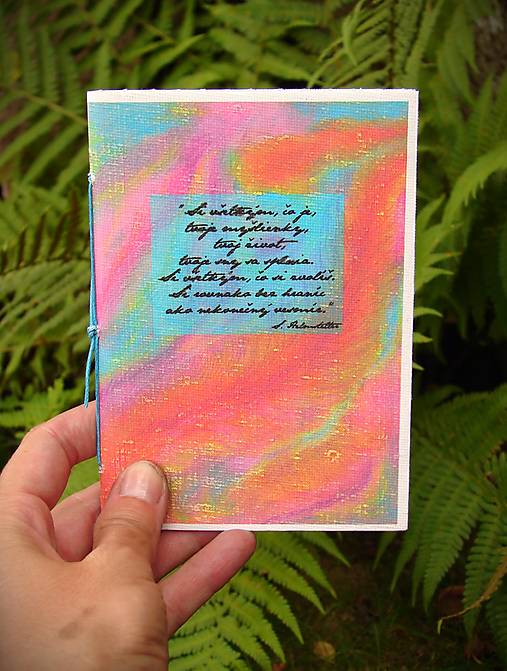 "Si všetkým, čo je,
tvoje myšlienky,
tvoj život,
tvoje sny sa splnia.
Si všetkým, čo si zvolíš.
Si rovnako bez hraníc
ako nekonečný vesmír."
S.